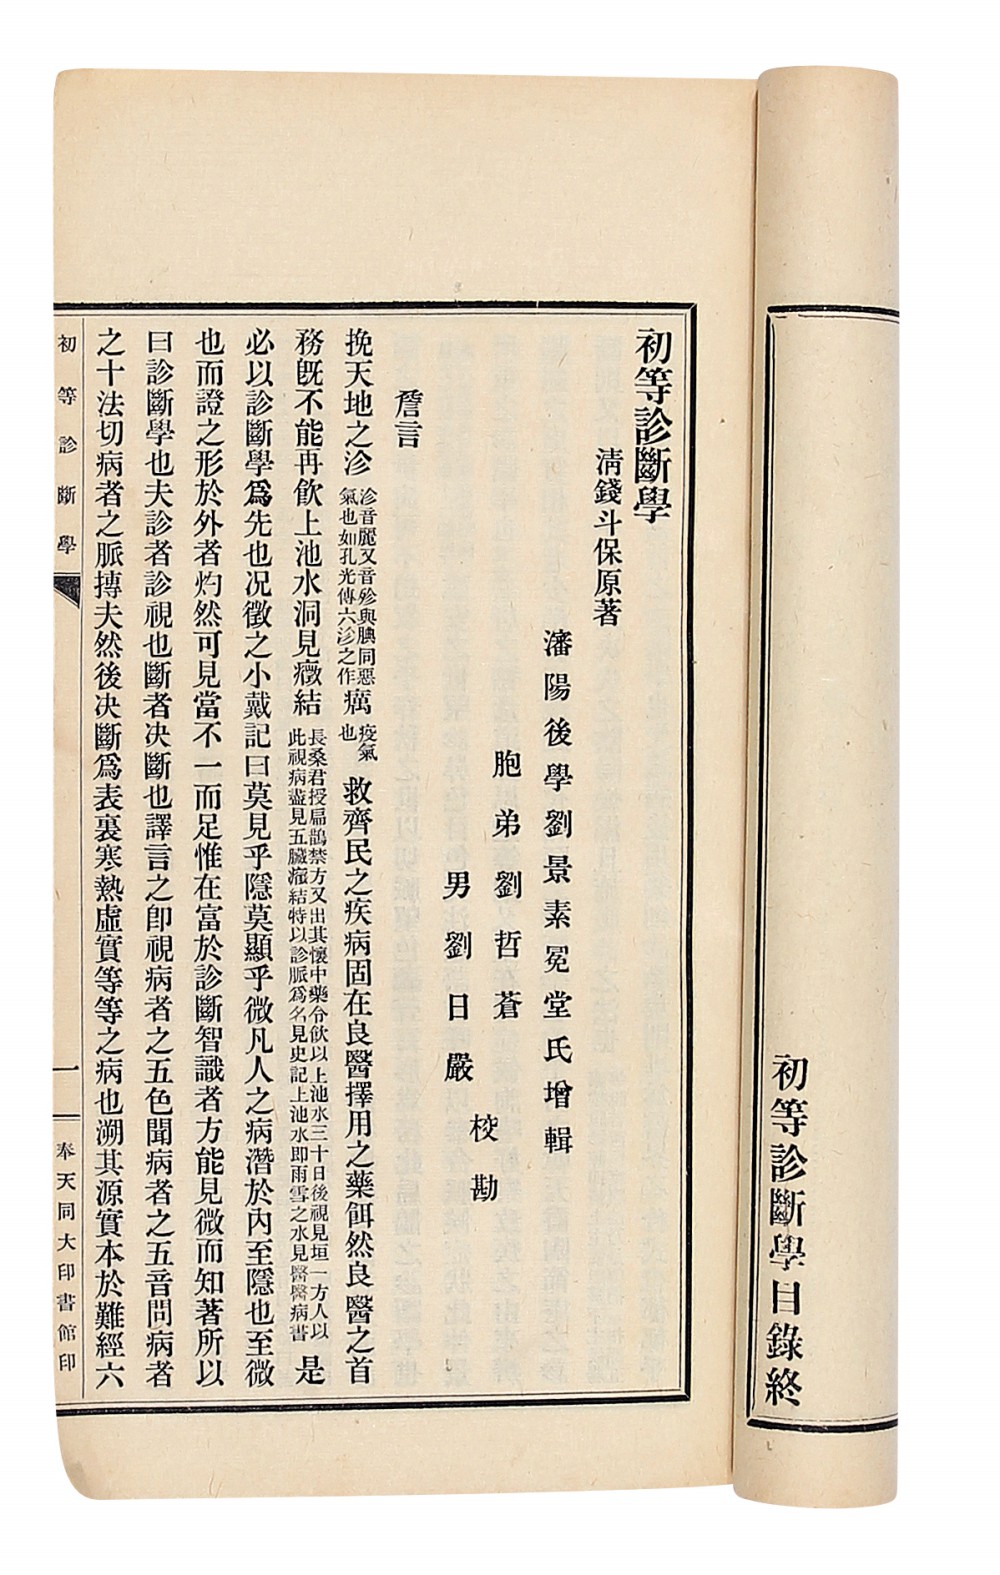 初等診斷學目錄終
初等診斷學
清錢斗保原著
瀋陽後學劉景素冕堂氏增輯
胞弟劉哲蒼
男劉日嚴
校勘
詹言
挽天地之沴沴音麗又音殄與䏲同惡氣也如孔光傳六沴之作癘疫氣也救齊民之疾病固在良醫擇用之藥餌然良醫之首
務旣不能再飮上池水洞見癥結長桑君授扁鵲禁方又出其懷中藥令飮以上池水三十日後視見垣一方人以此視病盡見五臟癥結特以診脈爲名見史記上池水卽雨雪之水見醫醫病書是
必以診斷學爲先也况徵之小戴記曰莫見乎隱莫顯乎微凡人之病潛於內至隱也至微
也而證之形於外者灼然可見當不一而足惟在富於診斷智識者方能見微而知著所以
曰診斷學也夫診者診視也斷者决斷也譯言之卽視病者之五色聞病者之五音問病者
之十法切病者之脈摶夫然後决斷爲表裏寒熱虛實等等之病也溯其源實本於難經六
初等診斷學
一
奉天同大印書館印